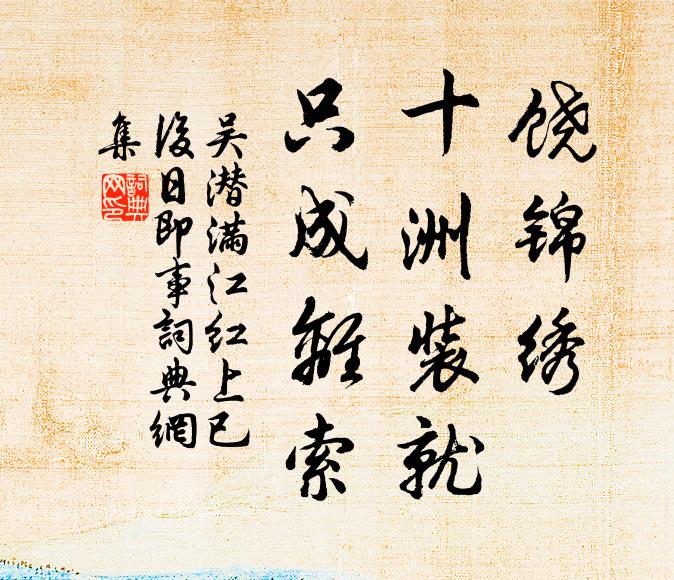 饶锦绣
十洲装就
只成离索
吴潜满江红上巳
後日即事詞典網
集
詞典
网印